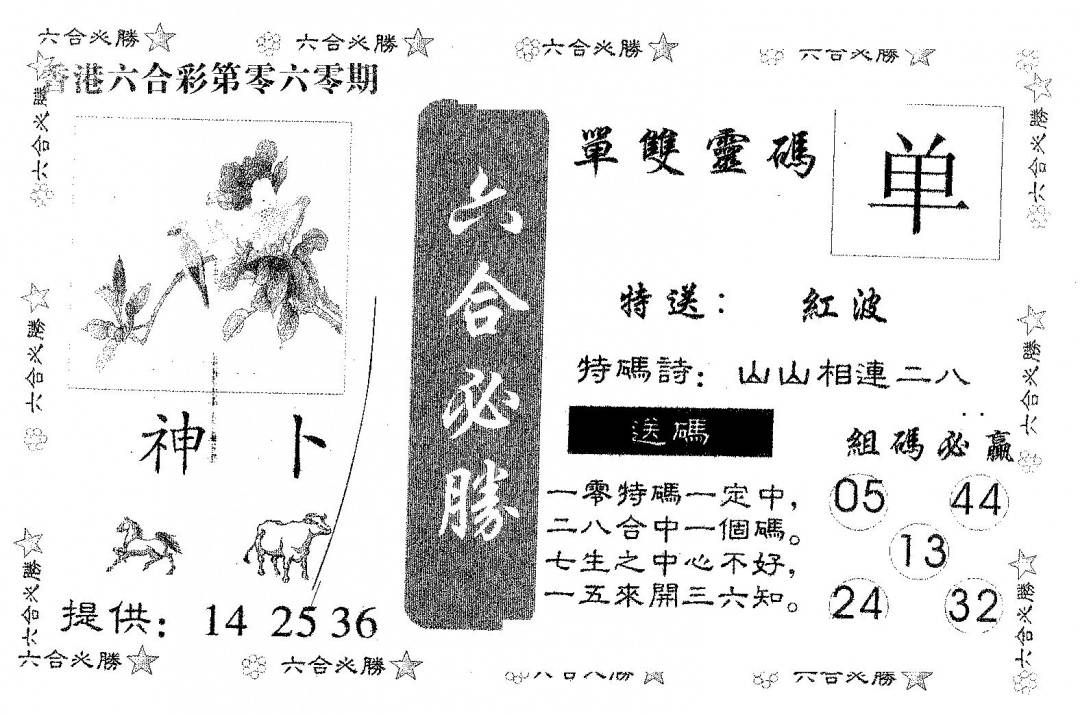 六合必勝 六合必勝 六合必勝 六合必勝
香港六合彩第零六零期
六合必勝
六合必勝
六合必勝
神卜
提供: 14 25 36
六合必勝
單雙靈碼
单
特送: 紅波
特碼詩: 山山相連二八
送碼
一零特碼一定中,
二八合中一個碼。
七生之中心不好,
一五來開三六知。
組碼必贏
05 44
13
24 32
六合必勝
六合必勝
六合必勝
六合必勝 六合必勝 六合必勝